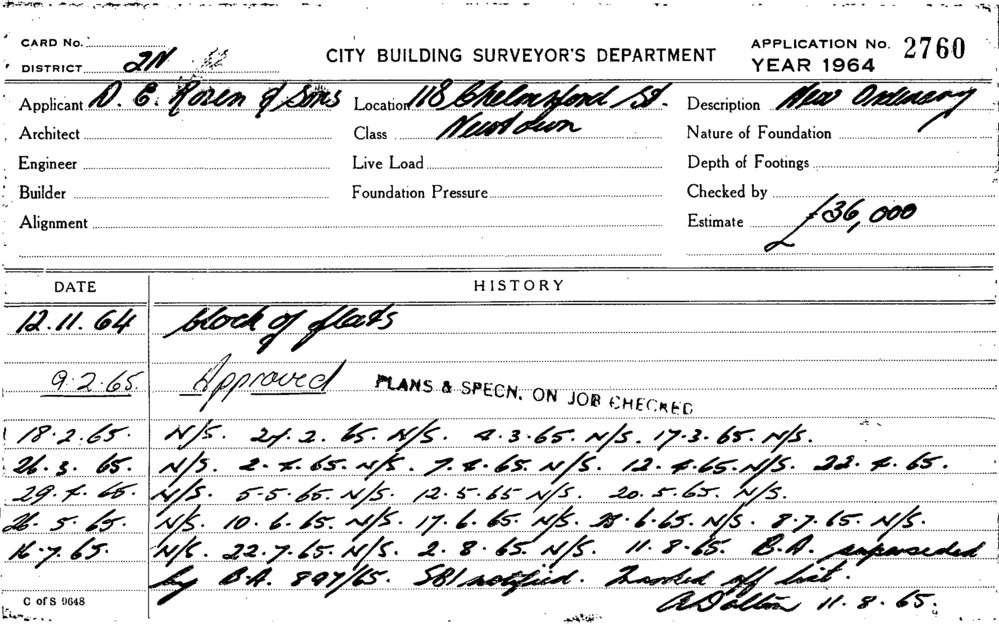 CARD No.
DISTRICT 2N
CITY BUILDING SURVEYOR'S DEPARTMENT
APPLICATION No. 2760
YEAR 1964
Applicant D. E. Rosen & Sons Location 118 Chelmsford St. Description New Ordinary
Architect Class Newtown Nature of Foundation
Engineer Live Load Depth of Footings
Builder Foundation Pressure Checked by
Alignment Estimate £36,000
DATE HISTORY
12.11.64 block of flats
9.2.65 Approved PLANS & SPECN. ON JOB CHECKED
18.2.65. N/S. 24.2.65. N/S. 4.3.65. N/S. 17.3.65. N/S.
26.3.65. N/S. 2.4.65. N/S. 7.4.65. N/S. 12.4.65. N/S. 22.4.65.
29.4.65. N/S. 5.5.65. N/S. 12.5.65 N/S. 20.5.65. N/S.
26.5.65. N/S. 10.6.65. N/S. 17.6.65. N/S. 6.65. N/S. 8.7.65. N/S.
16.7.65. N/S. 22.7.65. N/S. 2.8.65. N/S. 11.8.65. B.A. superseded
by B.A. 897/65. SBI notified. Marked off list.
A Dalton 11.8.65.
C of S 9648